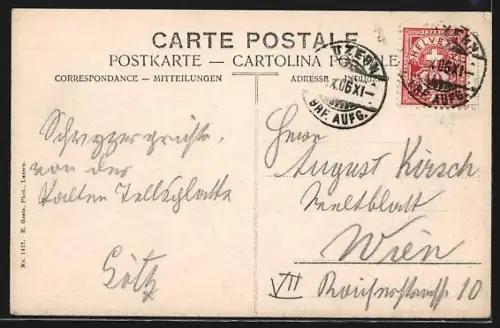 CARTE POSTALE
POSTKARTE - CARTOLINA POSTALE
CORRESPONDANCE - MITTEILUNGEN
ADRESSE
HELVETIA
LUZERN
X.06 XI
BRF. AUFG.
Schweizergrüße
von der
kalten Tellsplatte
Götz
Herrn
August Kirsch
Weltblatt
Wien
VII
Kaiserstrasse 10
No. 1417. E. Goetz, Phot., Luzern.